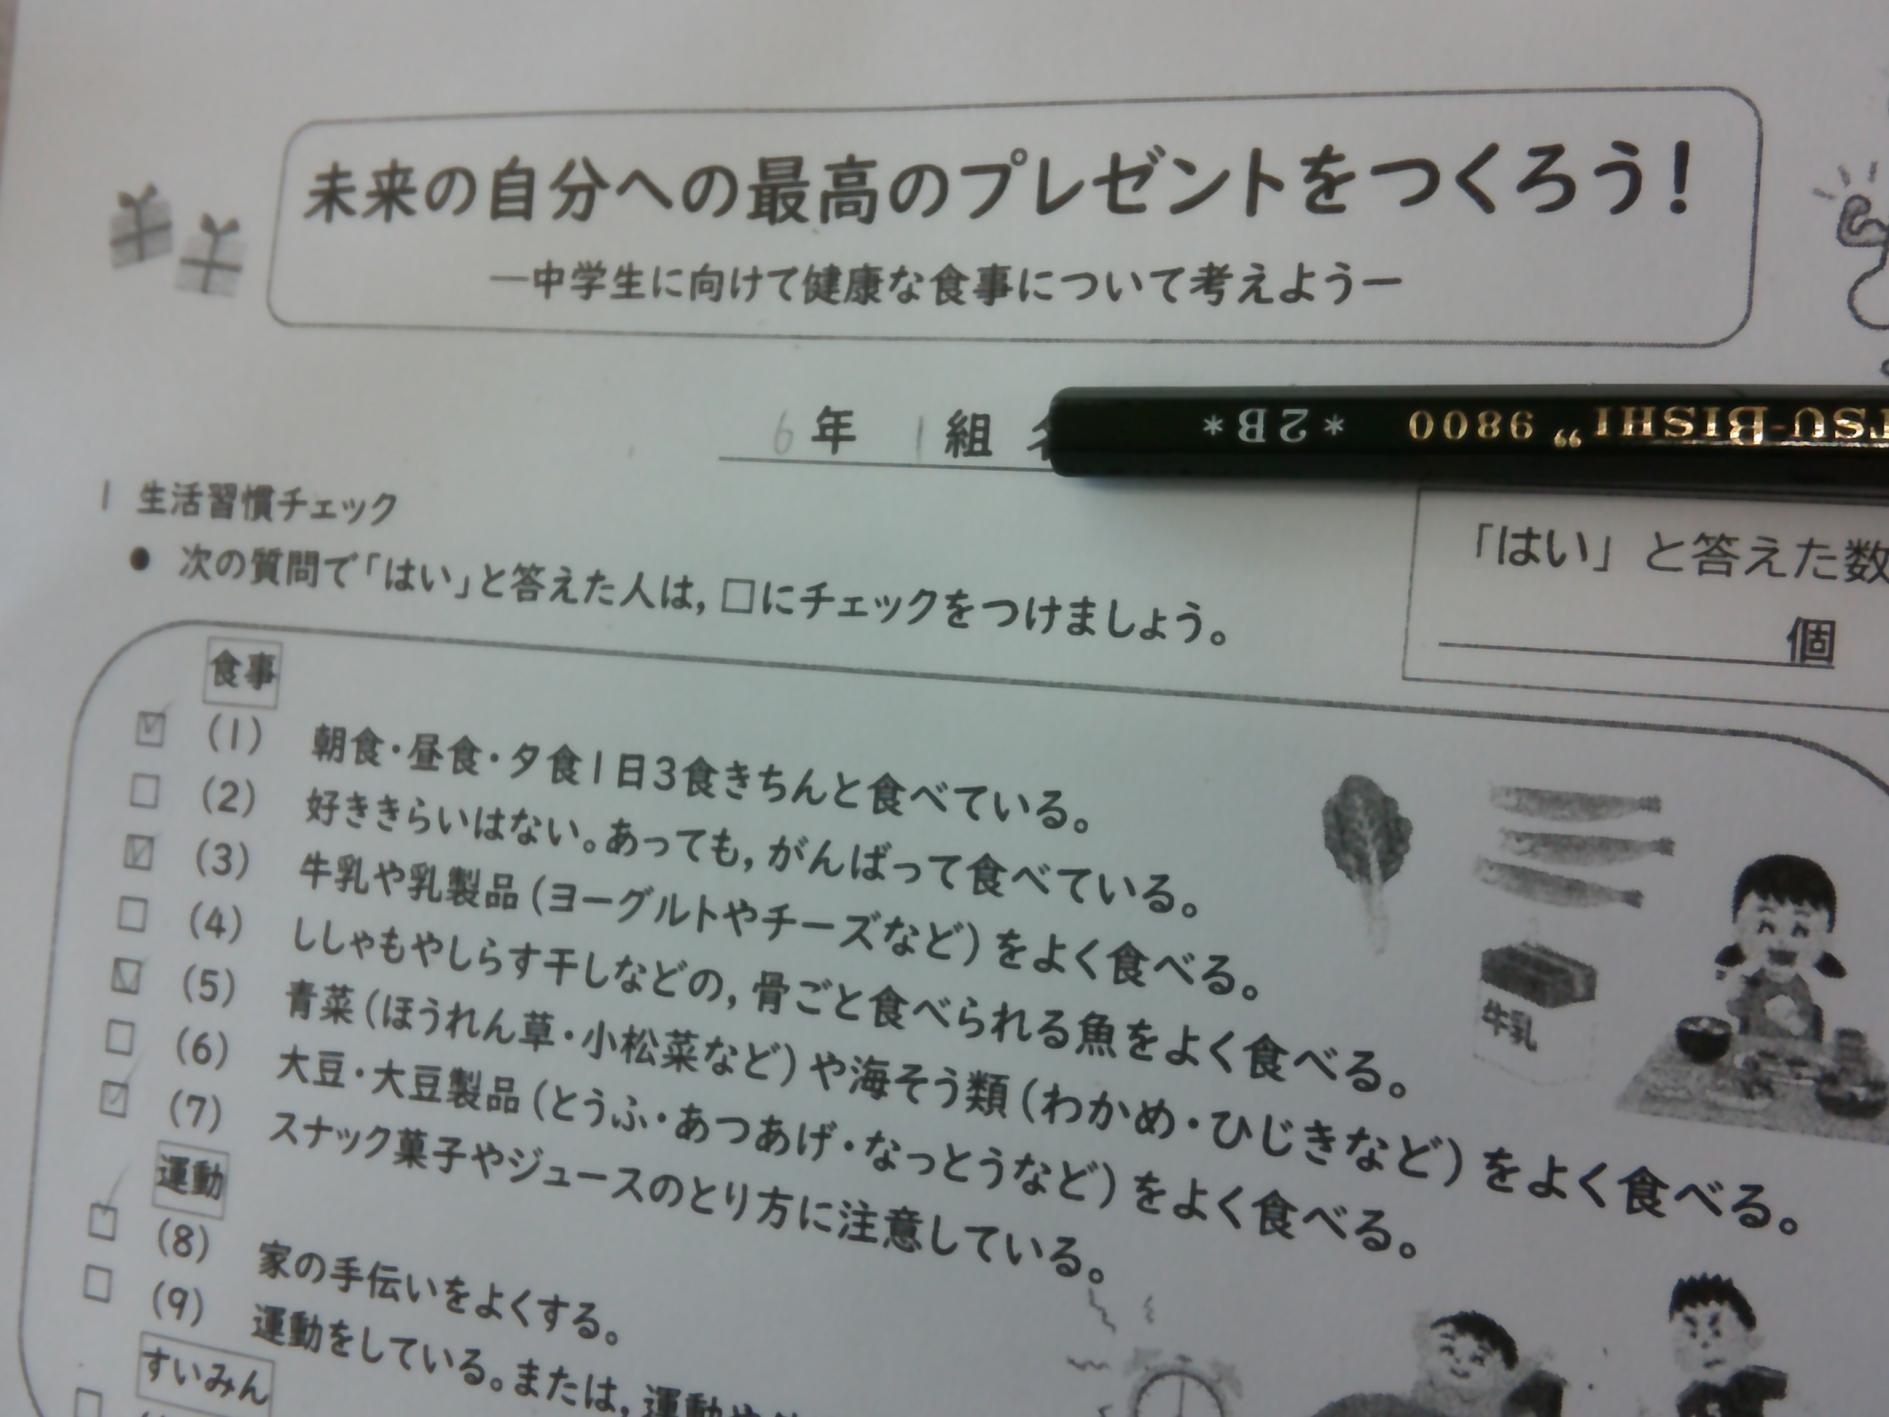 未来の自分への最高のプレゼントをつくろう！
―中学生に向けて健康な食事について考えよう―
6年 1組
*2B* 9800 „TSU-BISHI”
1 生活習慣チェック
● 次の質問で「はい」と答えた人は，□にチェックをつけましょう。
「はい」と答えた数
個
食事
☑ (1) 朝食・昼食・夕食1日3食きちんと食べている。
□ (2) 好ききらいはない。あっても，がんばって食べている。
☑ (3) 牛乳や乳製品（ヨーグルトやチーズなど）をよく食べる。
□ (4) ししゃもやしらす干しなどの，骨ごと食べられる魚をよく食べる。
☑ (5) 青菜（ほうれん草・小松菜など）や海そう類（わかめ・ひじきなど）をよく食べる。
□ (6) 大豆・大豆製品（とうふ・あつあげ・なっとうなど）をよく食べる。
☑ (7) スナック菓子やジュースのとり方に注意している。
牛乳
運動
☑ (8) 家の手伝いをよくする。
□ (9) 運動をしている。または，運動や
すいみん